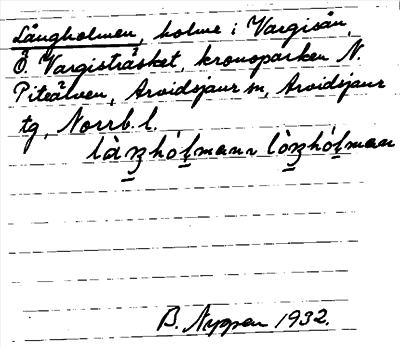 Långholmen, holme i Vargisån,
Ö. Vargisträsket, kronoparken N.
Piteälven, Arvidsjaur sn, Arvidsjaur
tg, Norrb. l.
B. Nygren 1932.